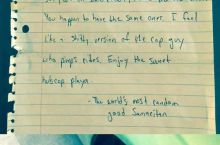 You happen to have the same ones. I feel
like a shitty version of the rap guy
who pimps rides. Enjoy the sweet
hubcap player.
-The world's most random
good Samaritan